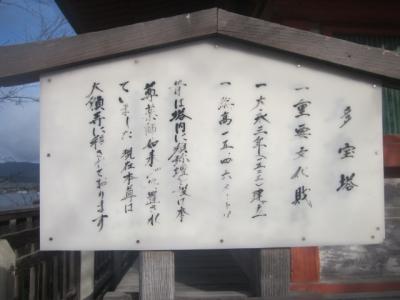 多宝塔
一 重要文化財
一 大永三年(一五二三)建立
一 総高 一五、四六メートル
昔は塔内に須弥壇を設け本
尊薬師如来が安置され
ていました 現在本尊は
大願寺に移っております